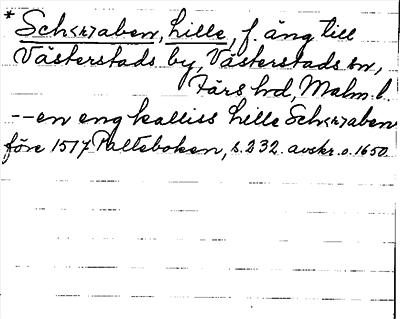 * Sch<r>aben, Lille, f. äng till
Västerstads by, Västerstads sn,
Färs hd, Malm. l.
-- en eng kalliss Lille Sch<r>aben
före 1517 Palteboken, s. 232. avskr. o. 1650.